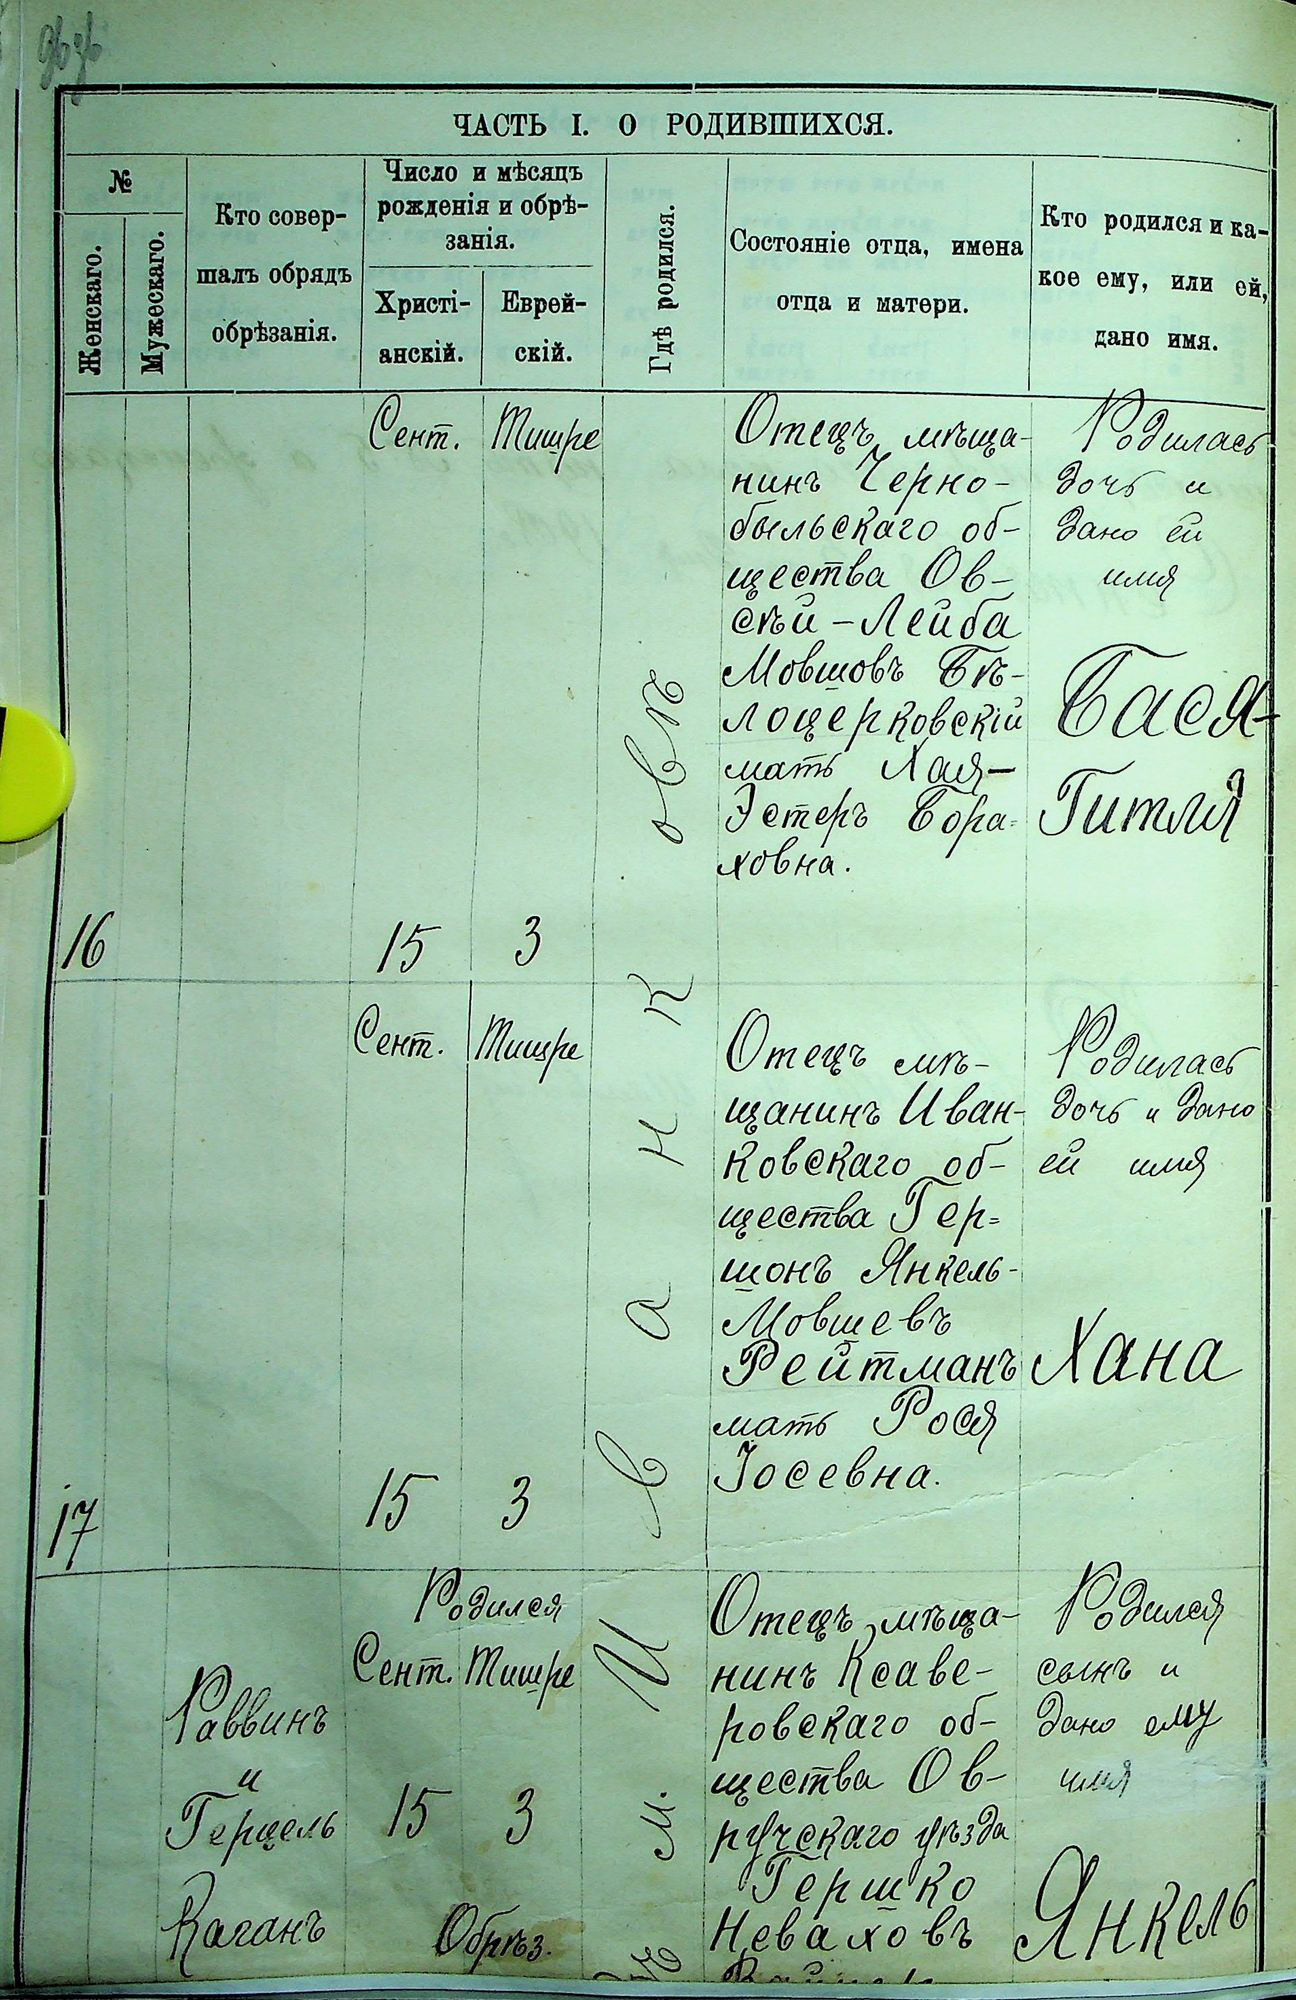 ЧАСТЬ I. О РОДИВШИХСЯ.
№
Женскаго.
Мужескаго.
Кто совер-
шалъ обрядъ
обрѣзанія.
Число и мѣсяцъ
рожденія и обрѣ-
занія.
Христі-
анскій.
Еврей-
скій.
Гдѣ родился.
Состояніе отца, имена
отца и матери.
Кто родился и ка-
кое ему, или ей,
дано имя.
16
Сент.
15
Тишре
3
Отецъ мѣща-
нинъ Черно-
быльскаго об-
щества Ов-
сѣй-Лейба
Мовшовъ Бѣ-
лоцерковскій
мать Хая-
Эстеръ Бора-
ховна.
Родилась
дочь и
дано ей
имя
Бася-
Гитля
17
Сент.
15
Тишре
3
Отецъ мѣ-
щанинъ Иван-
ковскаго об-
щества Гер-
шонъ Янкель-
Мовшевъ
Рейтманъ
мать Рося
Іосевна.
Родилась
дочь и дано
ей имя
Хана
Раввинъ
и
Герцель
Каганъ
Родился
Сент. Тишре
15 3
Обрѣз.
въ м. Иванковѣ
Отецъ мѣща-
нинъ Ксаве-
ровскаго об-
щества Ов-
ручскаго уѣзда
Гершко
Неваховъ
Родился
сынъ и
дано ему
имя
Янкель